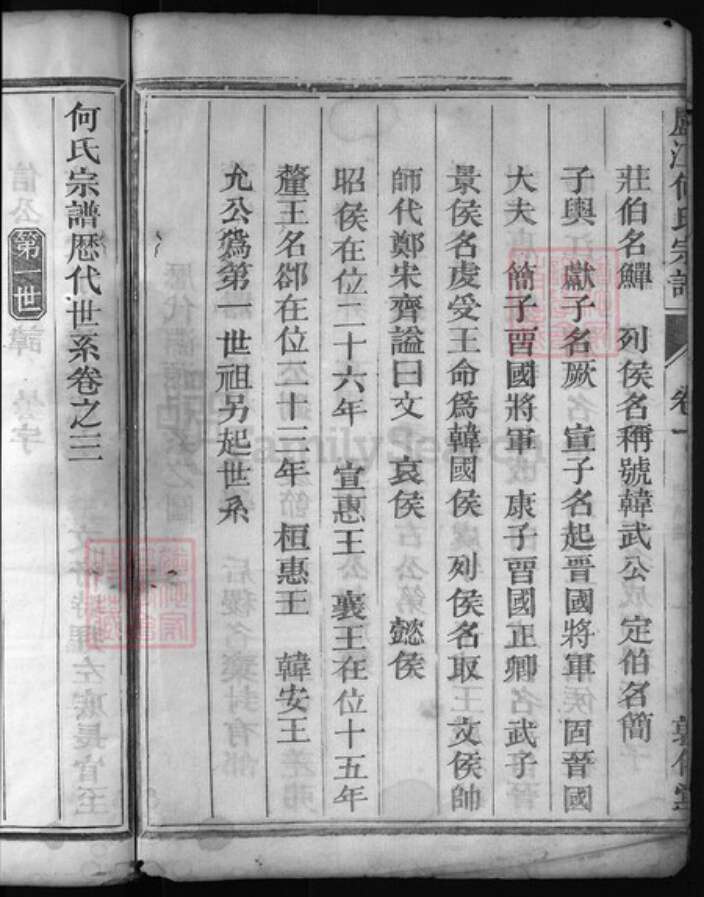 廬江何氏宗譜 卷一
莊伯名鱓 列侯名稱號韓武公 定伯名簡
子輿 獻子名厥 宣子名起晉國將軍 固晉國
大夫 簡子晉國將軍 康子晉國正卿 武子
景侯名虔受王命爲韓國侯 列侯名取 文侯帥
師代鄭宋齊謚曰文 哀侯 懿侯
昭侯在位二十六年 宣惠王 襄王在位十五年
釐王名郤在位二十三年 桓惠王 韓安王
允公爲第一世祖另起世系
何氏宗譜歷代世系卷之三
第一世
FamilySearch